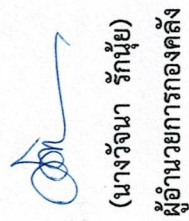 (นางวัจนา รักนุ้ย)
ผู้อำนวยการกองคลัง